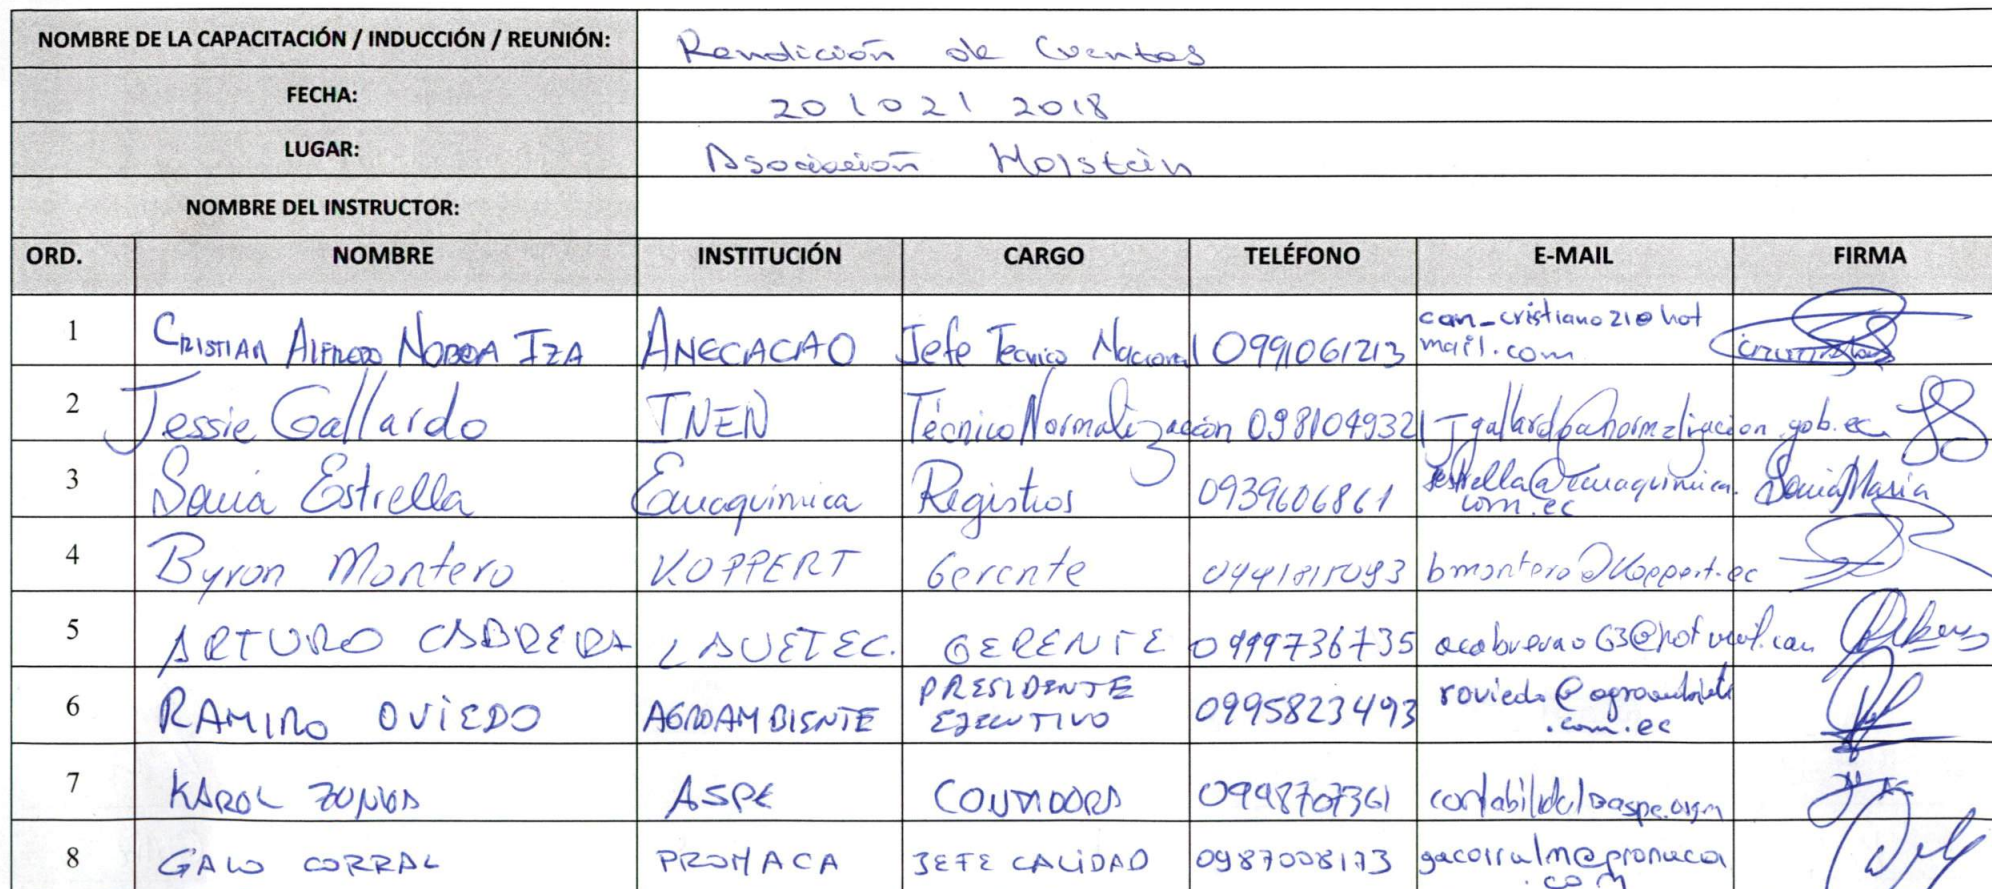 NOMBRE DE LA CAPACITACIÓN / INDUCCIÓN / REUNIÓN: Rendición de Cuentas
FECHA: 20 / 02 / 2018
LUGAR: Asociación Holstein
NOMBRE DEL INSTRUCTOR:
ORD. NOMBRE INSTITUCIÓN CARGO TELÉFONO E-MAIL FIRMA
1 CRISTIAN ALFREDO NOBOA IZA ANECACAO Jefe Tecnico Nacional 0991061213 can_cristiano21@hot
mail.com
2 Jessie Gallardo INEN Técnico Normalización 0981049321 Jgallardo@normalizacion.gob.ec
3 Sonia Estrella Ecuaquimica Registros 0939606861 sestrella@ecuaquimica. Sonia Maria
com.ec
4 Byron Montero KOPPERT Gerente bmontero@koppert.ec
5 ARTURO CABRERA LAVETEC. GERENTE 0999736735
6 RAMIRO OVIEDO AGROAMBIENTE PRESIDENTE
EJECUTIVO 0995823493 roviedo@agroambiente
.com.ec
7 KAROL ASPE CONTADORA 0998707361
8 GALO CORRAL PRONACA JEFE CALIDAD 0987008173 gacorralm@pronaca
.com